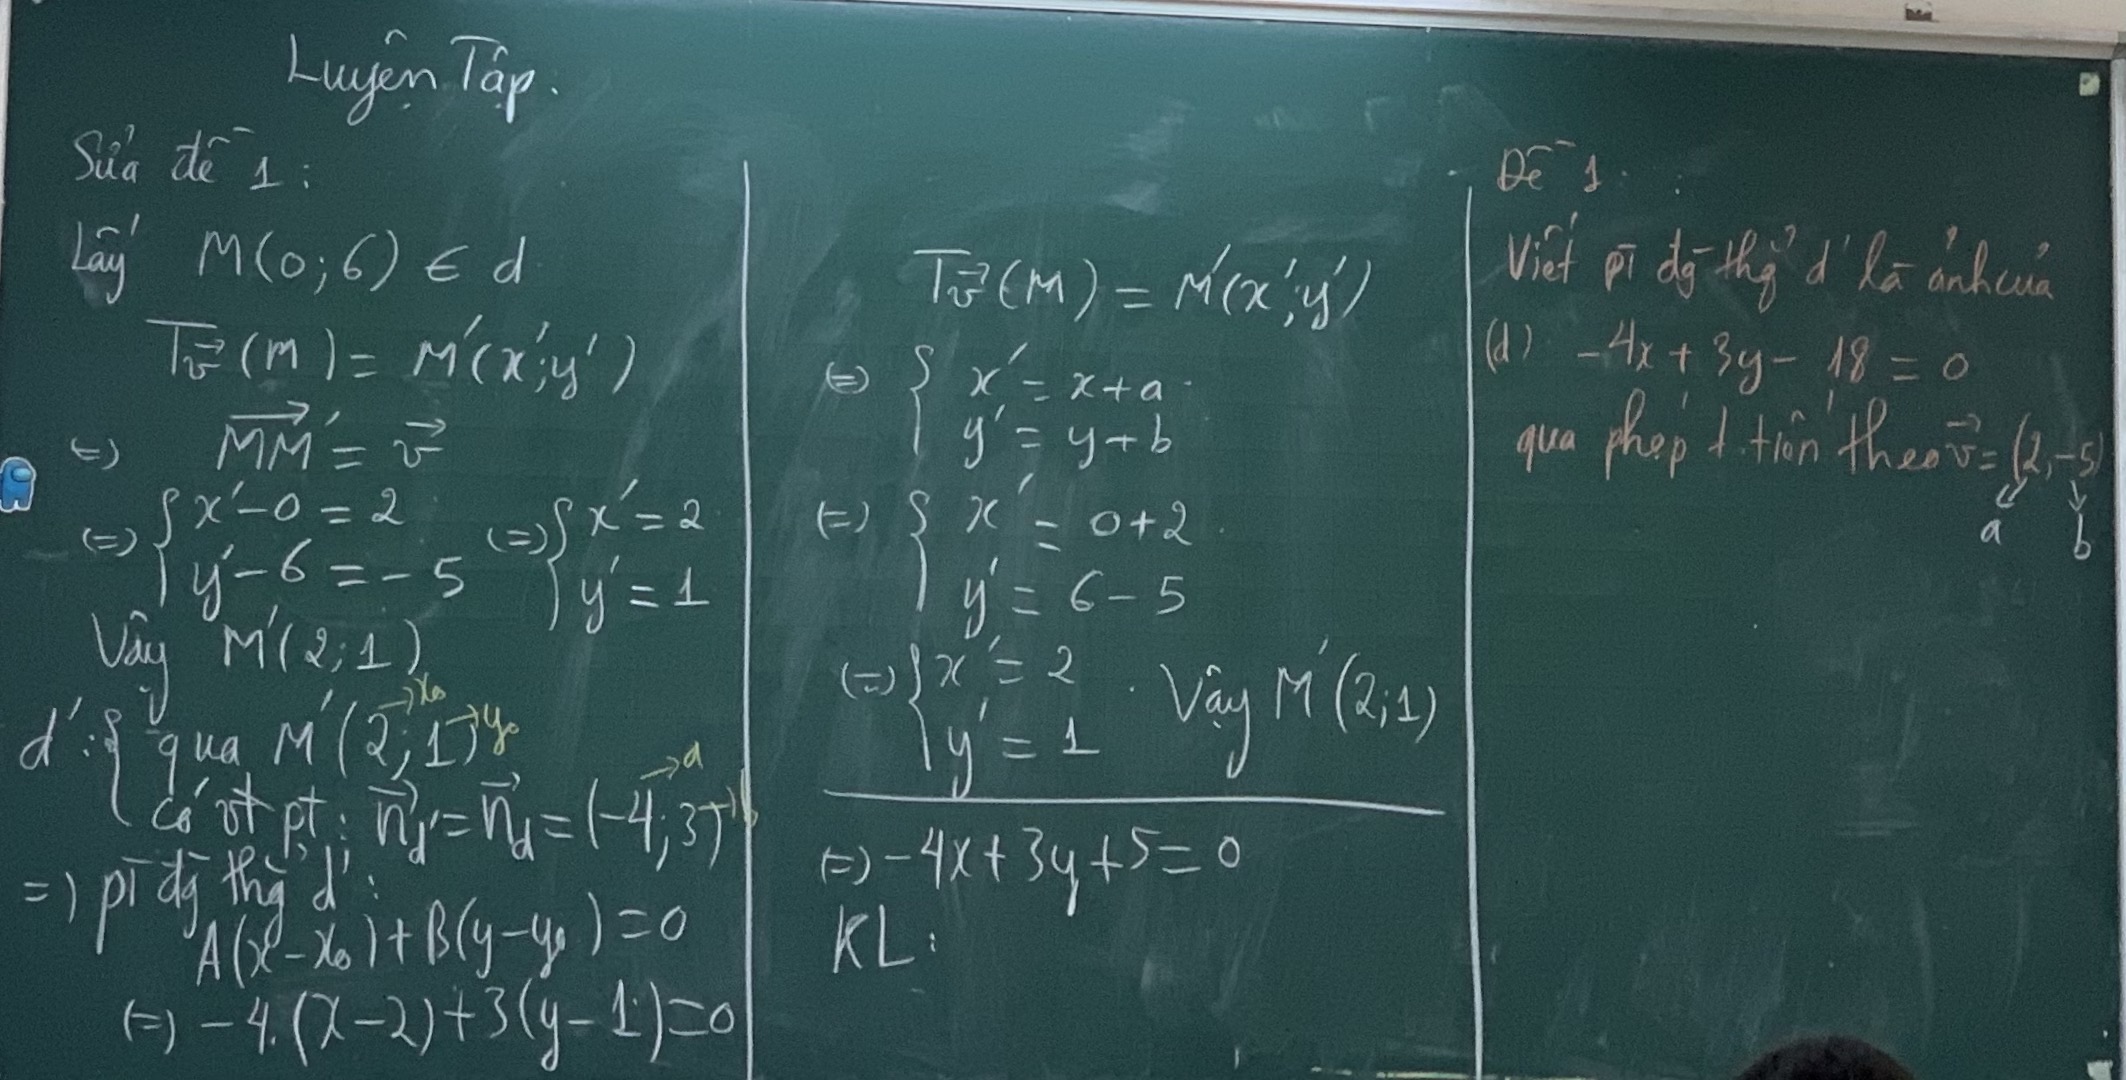 Luyện Tập.
Sửa đề 1:
Lấy M(0;6) ∈ d
T_v⃗ (M) = M'(x';y')
(=) MM'⃗ = v⃗
(=) { x'-0 = 2 (=) { x' = 2
y'-6 = -5 y' = 1
Vậy M'(2;1)
d': { qua M'(2;1) →x₀ →y₀
có vt pt: n⃗d' = n⃗d = (-4;3) →a →b
=) pt đg thg d':
A(x-x₀)+B(y-y₀)=0
(=) -4.(x-2)+3(y-1)=0
T_v⃗ (M) = M'(x';y')
(=) { x' = x+a
y' = y+b
(=) { x' = 0+2
y' = 6-5
(=) { x' = 2 . Vậy M'(2;1)
y' = 1
(=) -4x+3y+5=0
KL:
Đề 1:
Viết pt đg thg d' là ảnh của
(d) -4x+3y-18=0
qua phép t.tiến theo v⃗=(2,-5)
a b